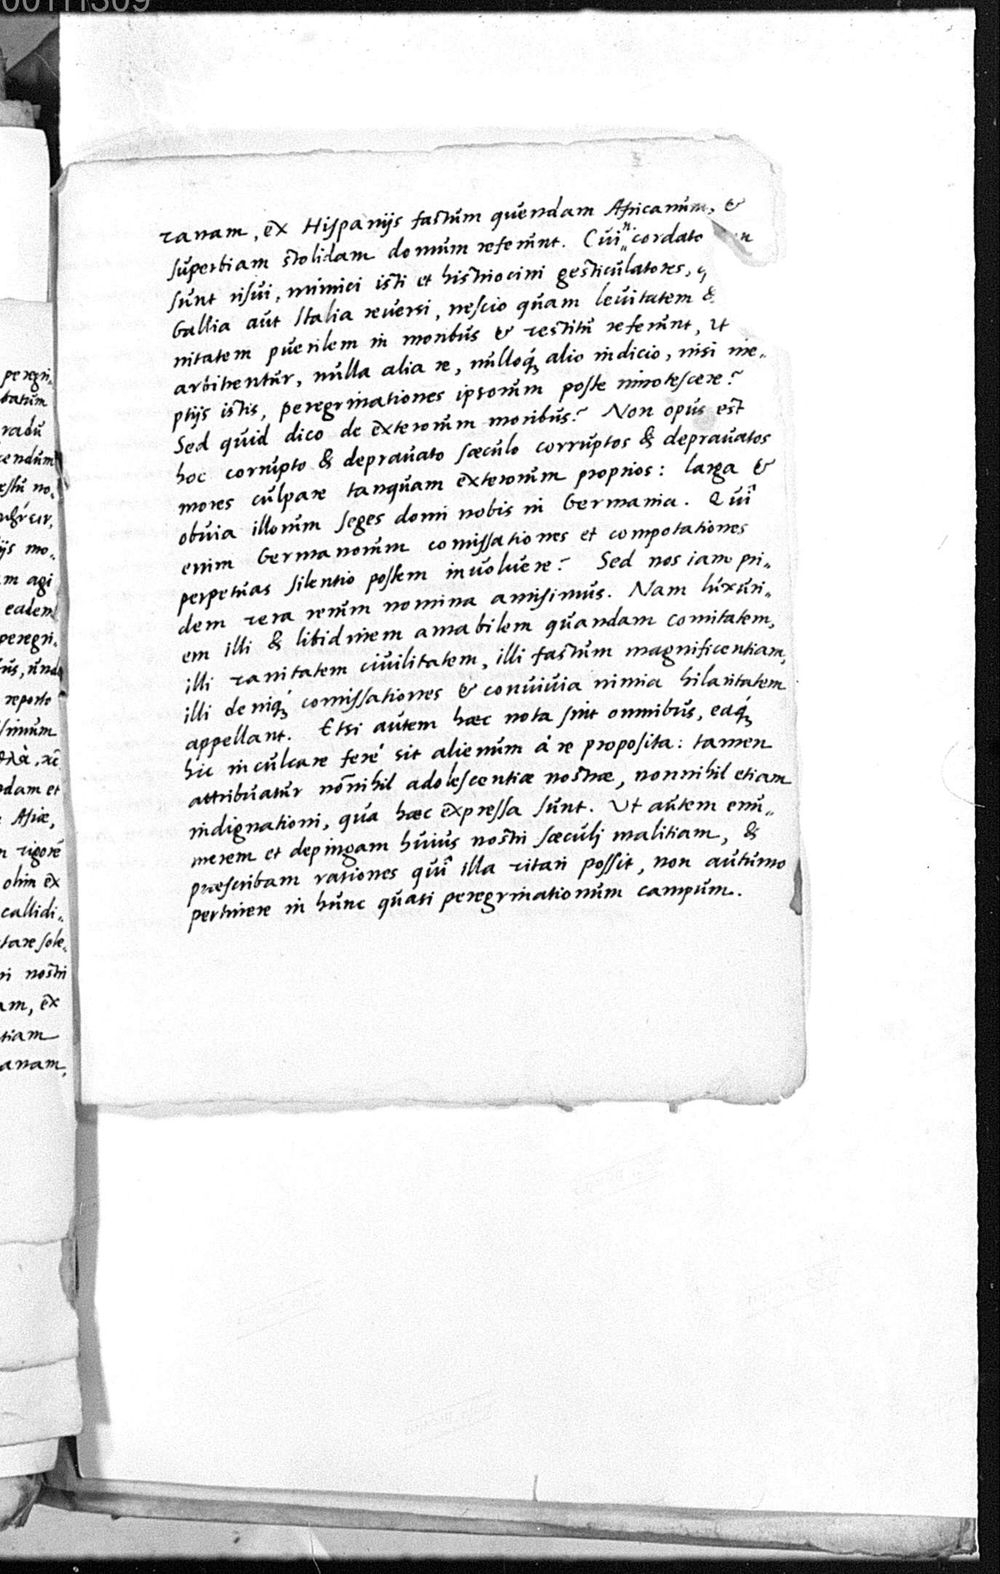 00111309
peregri„
batum
radu
cendum
estu no„
ijs mo„
m agi
eadem
peregri„
reporto
simum
dam et
Asiæ,
n rigorē
olim ex
callidi„
tare sole„
ri nostri
am, ex
tiam
anam,
vanam, ex Hispanijs fastum quendam Africanum, &
superbiam stolidam domum referunt. Cui cordato n
sunt risui, mimici isti et histriocini gesticulatores, q
Gallia aut Italia reversi, nescio quam levitatem &
nitatem puerilem in moribus & vestitu referunt, ut
arbitrentur, nulla alia re, nulloq́ alio indicio, nisi ine„
ptijs istis, peregrinationes ipsorum posse innotescere?
Sed quid dico de exterorum moribus? Non opus est
hoc corrupto & depravato sæculo corruptos & depravatos
mores culpare tanquam exterorum proprios: larga &
obvia illorum seges domi nobis in Germania. Quî
enim Germanorum comissationes et compotationes
perpetuas silentio possem involvere? Sed nos iam pri„
dem vera rerum nomina amisimus. Nam luxuri„
em illi & libidinem amabilem quandam comitatem,
illi vanitatem civilitatem, illi fastum magnificentiam,
illi deniq́ comissationes & convivia nimia hilaritatem
appellant. Etsi autem hæc nota sint omnibus, eaq́
hic inculcare ferè sit alienum à re proposita: tamen
attribuatur nōnihil adolescentiæ nostræ, nonnihil etiam
indignationi, qua hæc expressa sunt. Ut autem enu„
merem et depingam huius nostri sæculj malitiam, &
præscribam rationes quî illa vitari possit, non autumo
pertinere in hunc quasi peregrinationum campum.